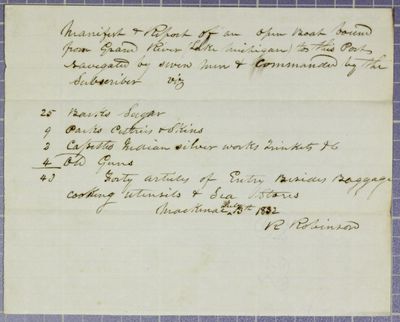 Manifest & Report of an Open Boat bound
from Grand River Lake Michigan) to this Port
Navigated by seven men & Commanded by the
Subscriber viz
25 Barks Sugar
9 Packs Peltries & Skins
2 Casetts Indian silver works Trinkets &c
4 Old Guns
40 Forty articles of Entry Besides Baggage
cooking utensils & Sea Stores
Mackinac 13th 1832
R Robinson